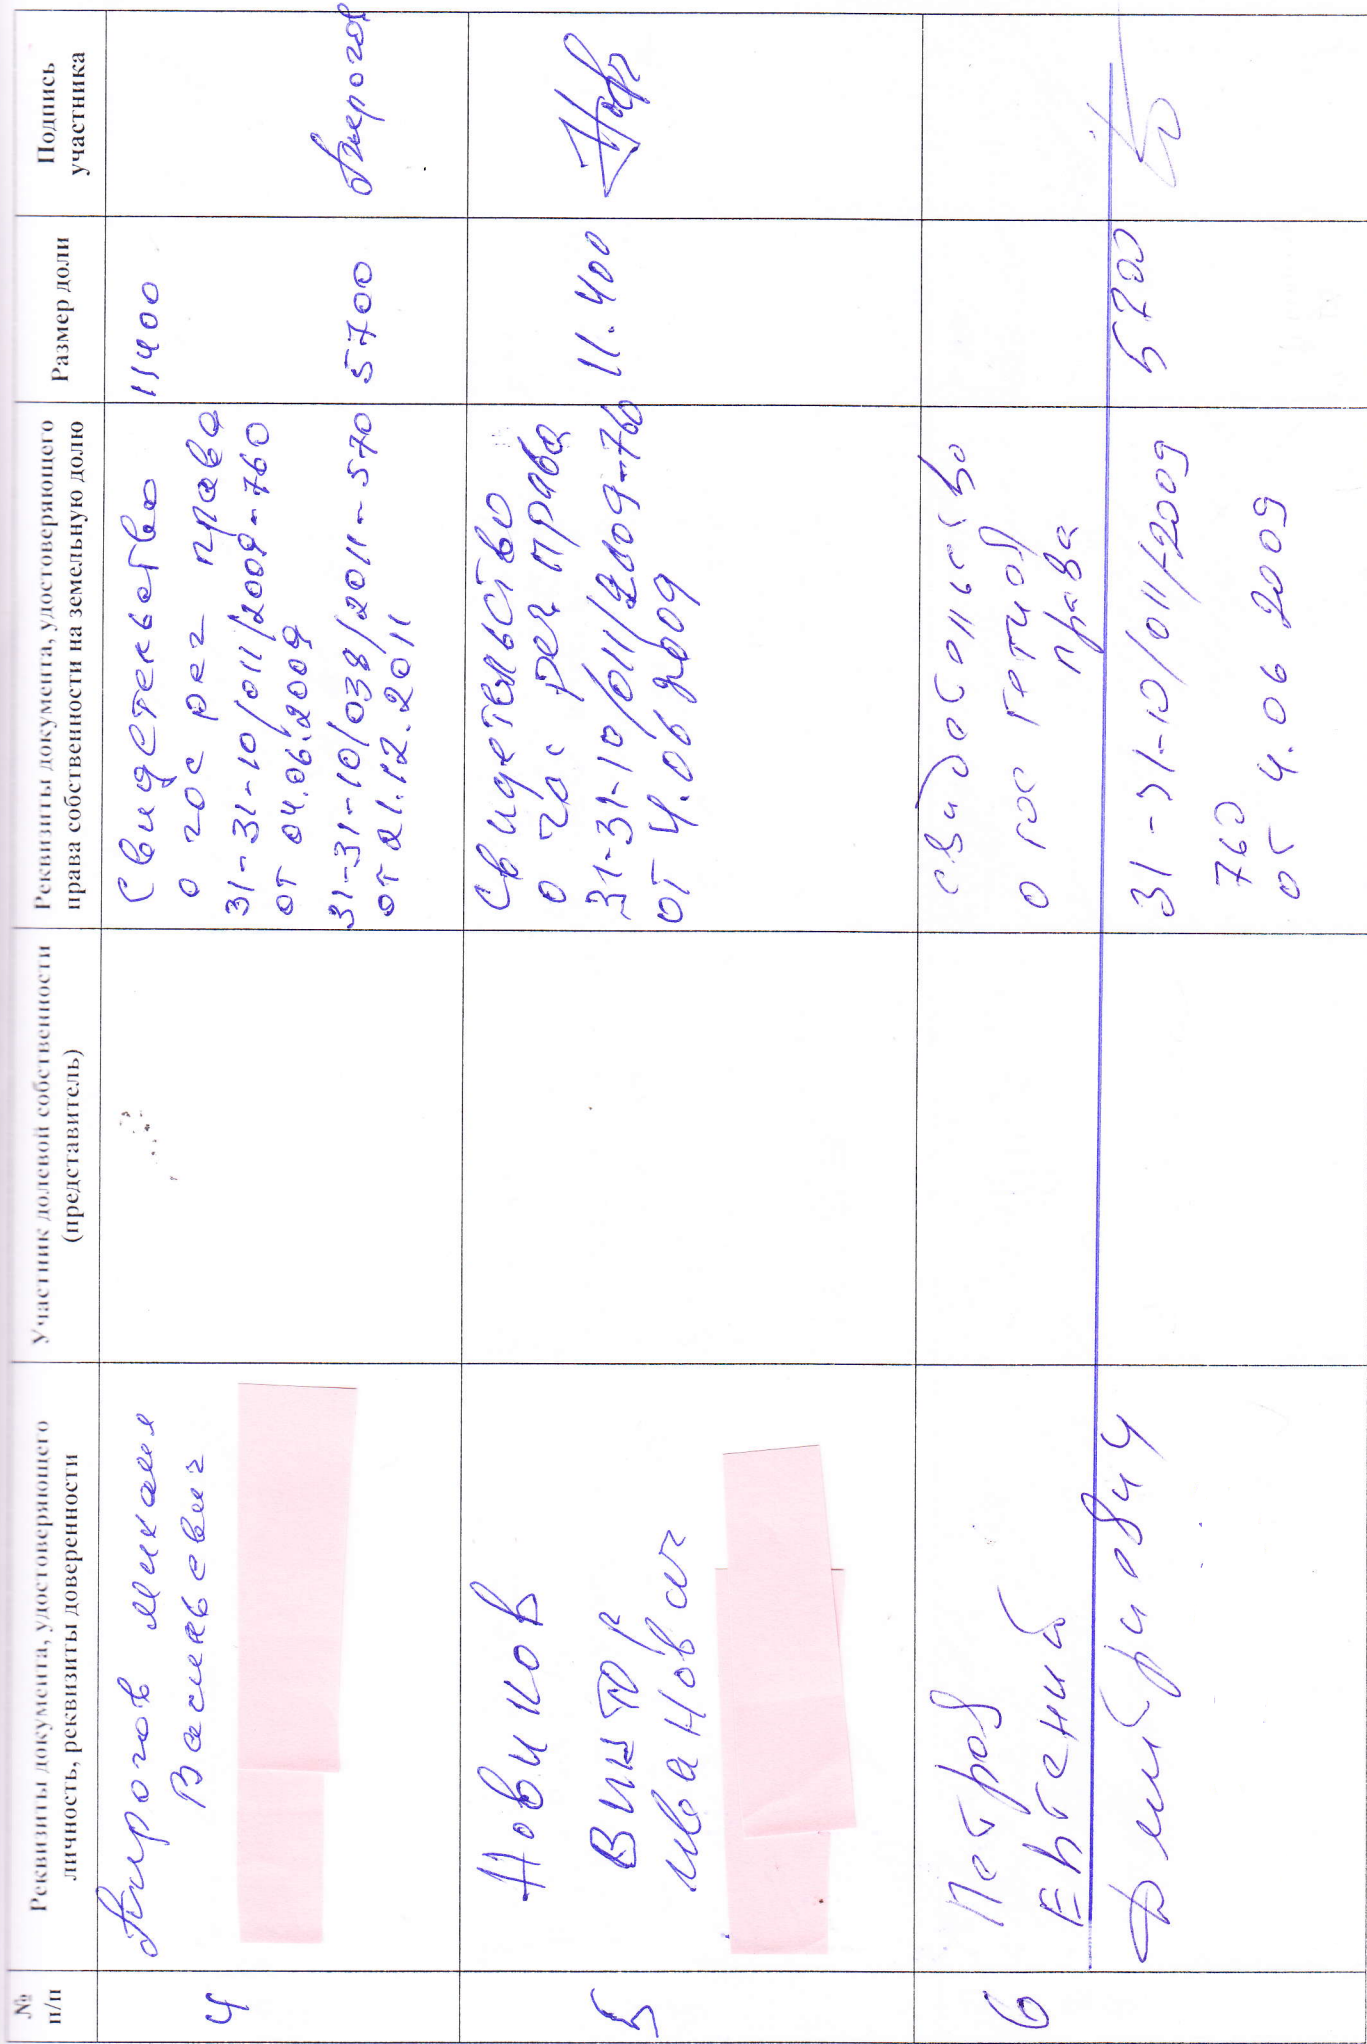 №
п/п
Реквизиты документа, удостоверяющего
личность, реквизиты доверенности
Участник долевой собственности
(представитель)
Реквизиты документа, удостоверяющего
права собственности на земельную долю
Размер доли
Подпись
участника
4
Пирогов Михаил
Васильевич
Свидетельство
о гос рег права
31-31-10/011/2009-760
от 04.06.2009
31-31-10/038/2011-570
от 21.12.2011
11400
5700
Пирогов
5
Новиков
Виктор
Иванович
Свидетельство
о гос рег права
31-31-10/011/2009-760
от 4.06 2009
11.400
6
Петров
Евгений
Дмитриевич
о гос
права
31-31-10/011/2009
760
от 4.06 2009
5700